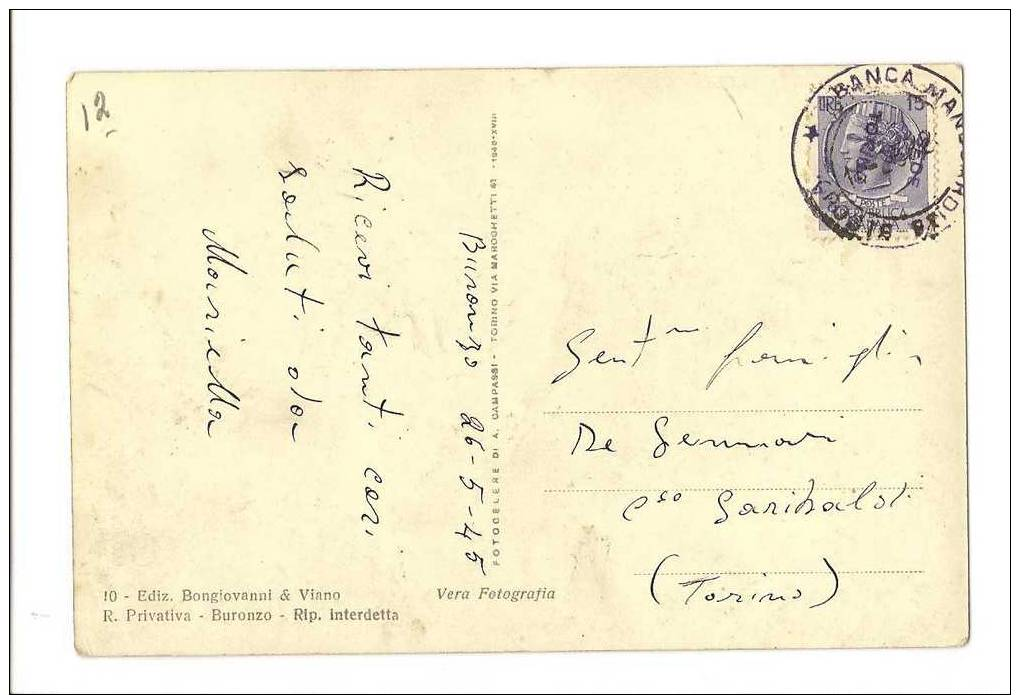 12
Buronzo 26-5-45
Ricevi tanti cari
saluti da
Mariella
FOTOCELERE DI A. CAMPASSI - TORINO VIA MAROCHETTI 41 - 1940-XVIII
BANCA MAN
SEDE
LIRE 15
POSTE
Gent.me famiglia
De Gennari
C.so Garibaldi
(Torino)
10 - Ediz. Bongiovanni & Viano
R. Privativa - Buronzo - Rip. Interdetta
Vera Fotografia